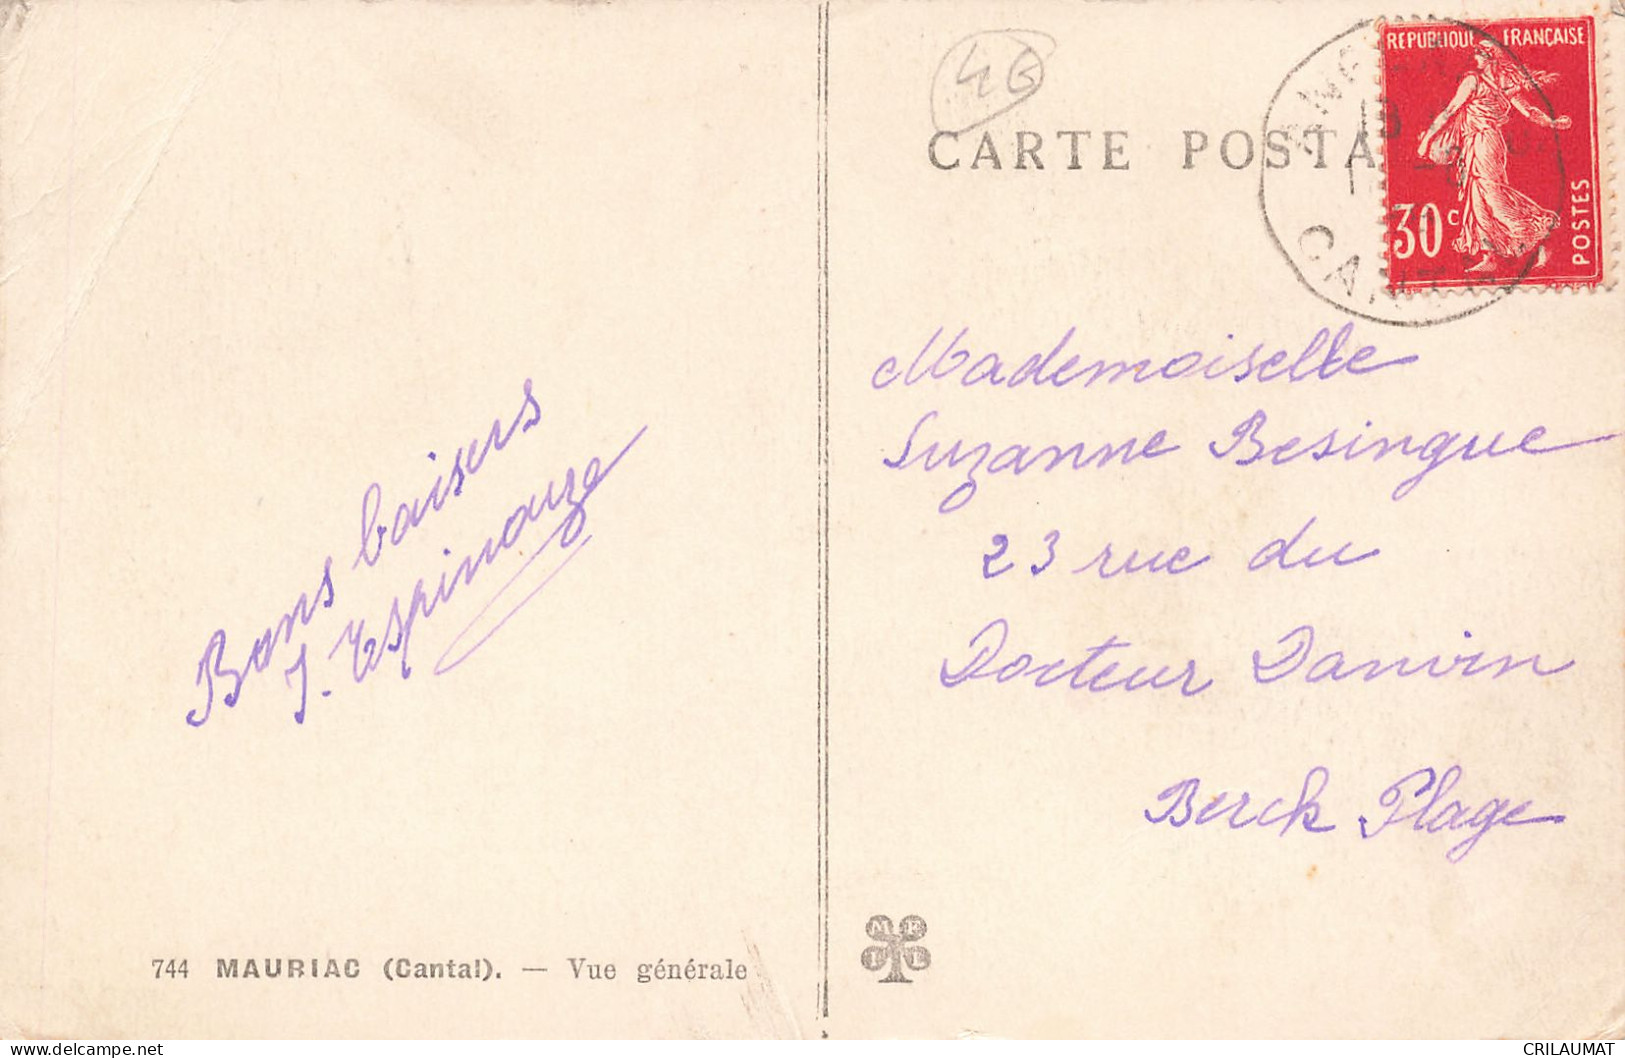 46
CARTE POSTA
REPUBLIQUE FRANÇAISE
30c
POSTES
CANTAL
Mademoiselle
Suzanne Besingue
23 rue du
Docteur Danvin
Berck Plage
Bons baisers
J. Espinouze
744 MAURIAC (Cantal). — Vue générale
M P
I L
CRILAUMAT